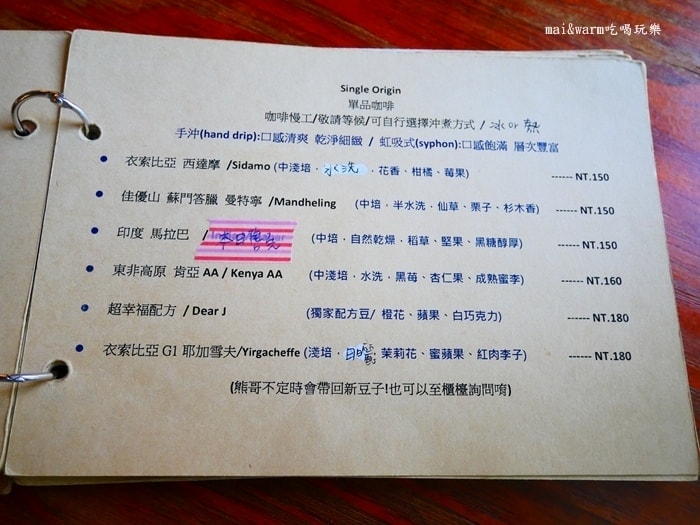 mai&warm吃喝玩樂
Single Origin
單品咖啡
咖啡慢工/敬請等候/可自行選擇沖煮方式 / 冰 or 熱
手沖(hand drip):口感清爽 乾淨細緻 / 虹吸式(syphon):口感飽滿 層次豐富
• 衣索比亞 西達摩 /Sidamo (中淺培﹒水洗﹒花香、柑橘、莓果) ------ NT.150
• 佳優山 蘇門答臘 曼特寧 /Mandheling (中培﹒半水洗﹒仙草、栗子、杉木香) ------ NT.150
• 印度 馬拉巴 / 本日售完 (中培﹒自然乾燥﹒稻草、堅果、黑糖醇厚) ------ NT.150
• 東非高原 肯亞 AA / Kenya AA (中淺培﹒水洗﹒黑莓、杏仁果、成熟蜜李) ------ NT.160
• 超幸福配方 / Dear J (獨家配方豆/ 橙花、蘋果、白巧克力) ------ NT.180
• 衣索比亞 G1 耶加雪夫/Yirgacheffe (淺培﹒日曬﹒茉莉花、蜜蘋果、紅肉李子) ------ NT.180
(熊哥不定時會帶回新豆子!也可以至櫃檯詢問唷)